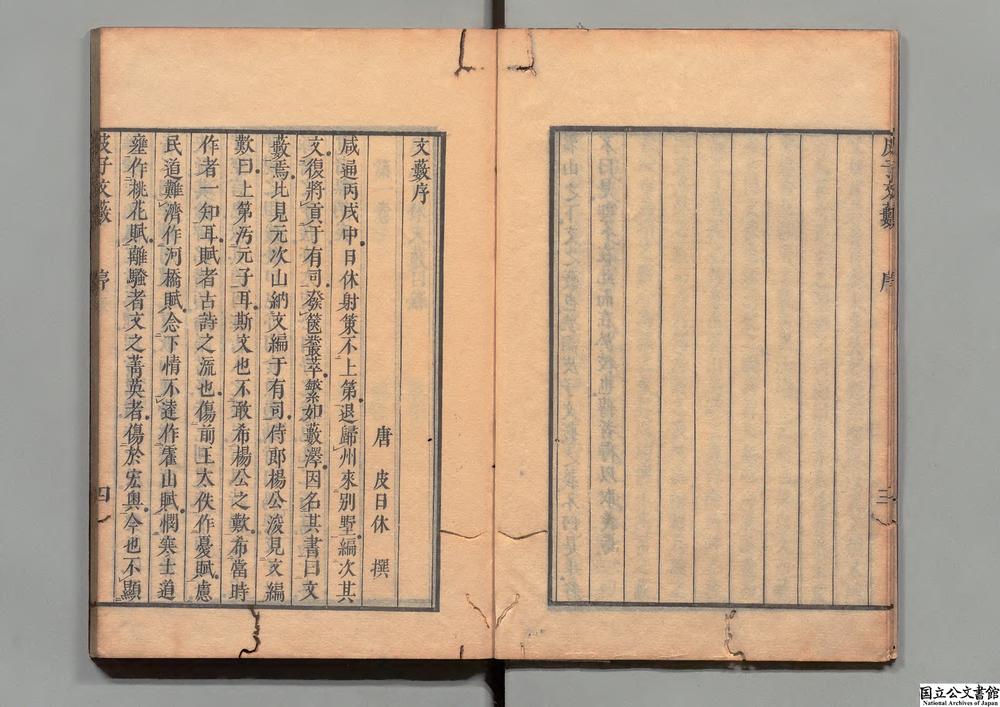 文藪序
唐 皮日休 撰
咸通丙戌中日休射策不上第退歸州來別墅編次其
文復將貢于有司發篋叢萃繁如藪澤因名其書曰文
藪焉比見元次山納文編于有司侍郎楊公浚見文編
歎曰上第汚元子耳斯文也不敢希楊公之歎希當時
作者一知耳賦者古詩之流也傷前王太佚作憂賦慮
民道難濟作河橋賦念下情不達作霍山賦憫寒士道
壅作桃花賦離騷者文之菁英者傷於宏奧今也不顯
皮子文藪 序 四
皮子文藪 序 三
国立公文書館
National Archives of Japan